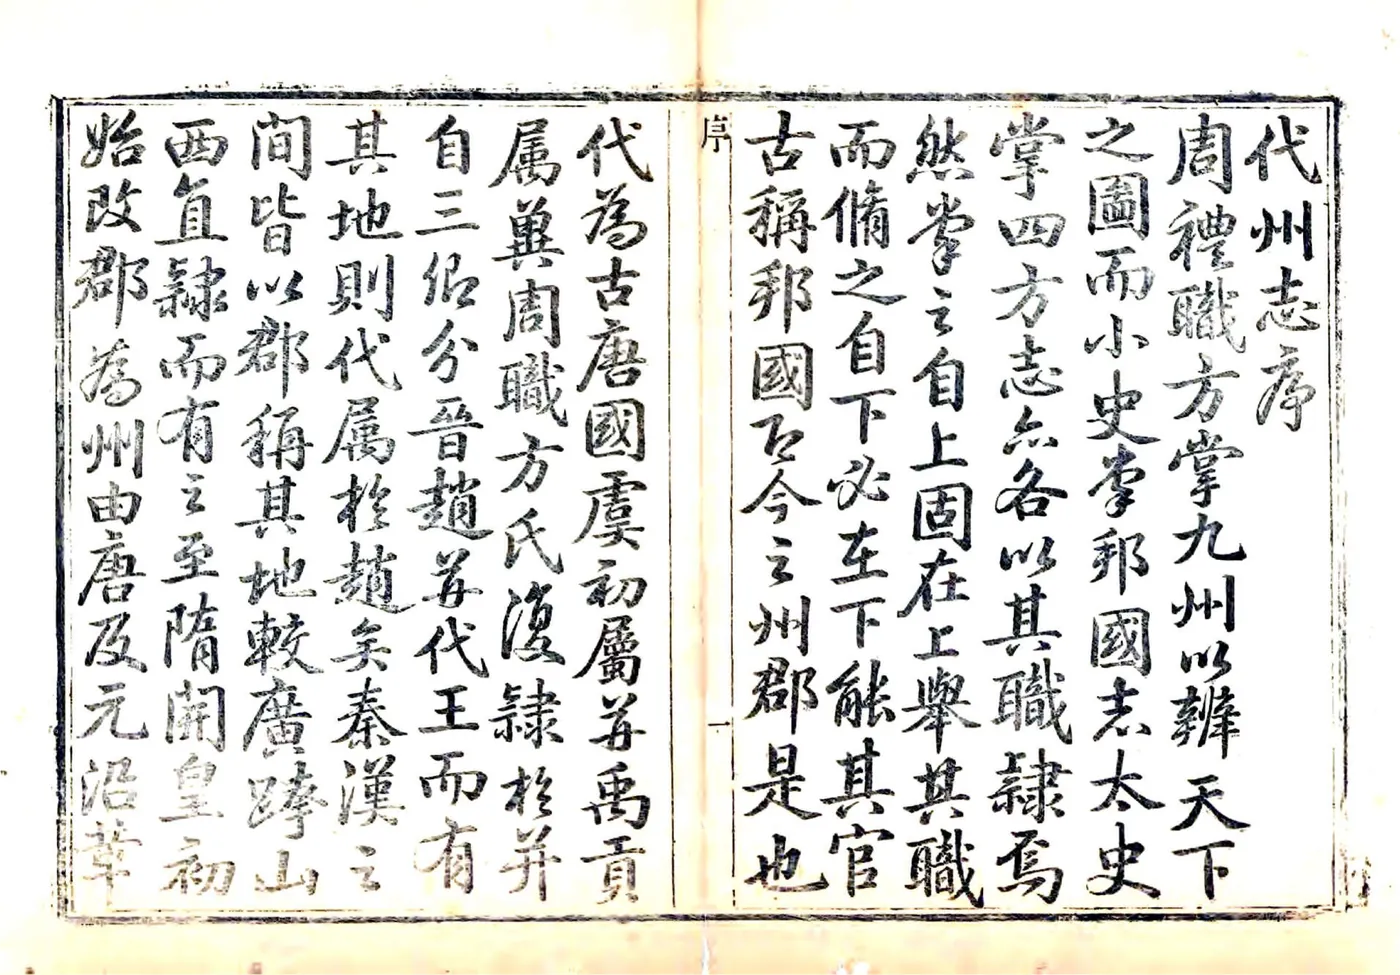 代州志序
周禮職方掌九州以辨天下
之圖而小史掌邦國志太史
掌四方志亦各以其職隸焉
然掌之自上固在上舉其職
而脩之自下必在下能其官
古稱邦國於今之州郡是也
序
一
代為古唐國虞初屬并禹貢
属冀周職方氏復隸於并
自三卿分晉趙并代王而有
其地則代属於趙矣秦漢之
間皆以郡稱其地較廣跨山
西直隸而有之至隋開皇初
始改郡為州由唐及元沿革